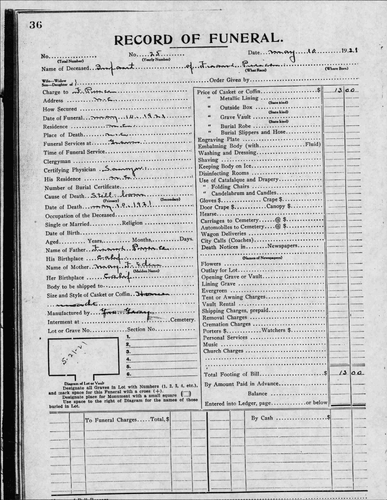 36
RECORD OF FUNERAL.
No. 25 Date May 10 1921
(Total Number) (Yearly Number)
Name of Deceased Infant of Frank
(What Race) (Where Born)
Wife-Widow
Son-Daughter of Order Given by
Charge to F. Pierce
Address
How Secured
Date of Funeral May 10, 1921
Residence
Place of Death
Funeral Services at
Time of Funeral Service
Clergyman
Certifying Physician Sawyer
His Residence
Number of Burial Certificate
Cause of Death Still born
(Primary) (Secondary)
Date of Death May 10, 1921
Occupation of the Deceased
Single or Married Religion
Date of Birth
Aged Years, Months, Days.
Name of Father Frank Pierce
His Birthplace Calif
Name of Mother Mary
(Maiden Name)
Her Birthplace Calif
Body to be shipped to
Size and Style of Casket or Coffin Home
made
Manufactured by
Interment at Cemetery.
Lot or Grave No. Section No.
5-21-21
1.
2.
3.
4.
5.
6.
Diagram of Lot or Vault
Designate all Graves in Lot with Numbers (1, 2, 3, 4, etc.),
and mark space for this Funeral with a cross (+).
Designate place for Monument with a small square
Use space to the right of Diagram for the names of those
buried in Lot.
Price of Casket or Coffin $ 13 00
" Metallic Lining
(State kind)
" Outside Box
(State kind)
" Grave Vault
(State kind)
" Burial Robe
(State kind)
" Burial Slippers and Hose
Engraving Plate
Embalming Body (with Fluid)
Washing and Dressing
Shaving
Keeping Body on Ice
Disinfecting Rooms
Use of Catafalque and Drapery
" Folding Chairs
" Candelabrum and Candles
Gloves $ Crape $
Door Crape $ Canopy $
Hearse
Carriages to Cemetery @ $
Automobiles to Cemetery @ $
Wagon Deliveries
City Calls (Coaches)
Death Notices in Newspapers
(Names of Newspapers)
Flowers
Outlay for Lot
Opening Grave or Vault
Lining Grave
Evergreen
Tent or Awning Charges
Vault Rental
Shipping Charges, prepaid
Removal Charges
Cremation Charges
Porters $ Watchers $
Personal Services
Music
Church Charges
Total Footing of Bill $ 13 00
By Amount Paid in Advance
Balance
Entered into Ledger, page or below
To Funeral Charges Total, $ By Cash $